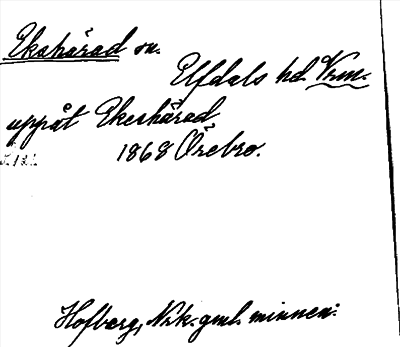 Ekshärad sn.
Elfdals hd. Vrm.
uppåt Ekeshärad
1868 Örebro.
Hofberg, Nrk. gml. minnen: